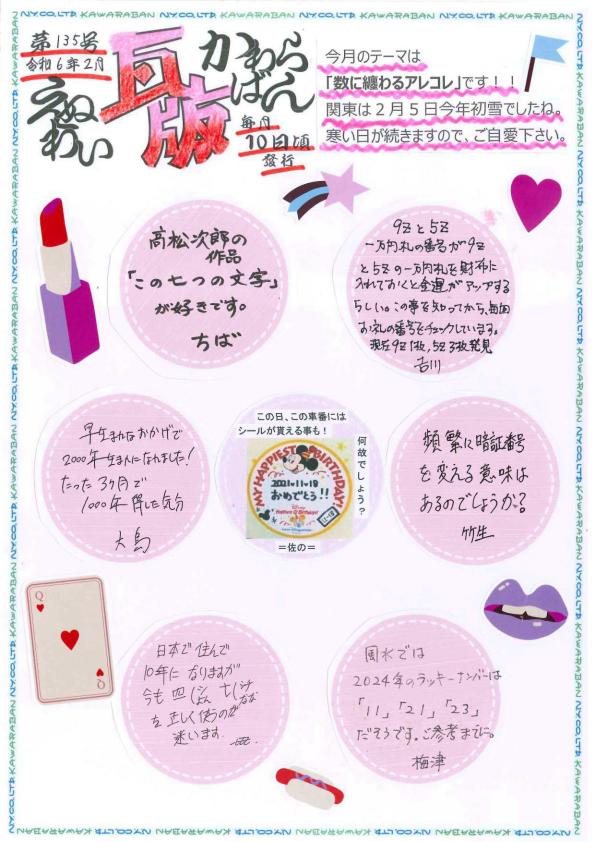 第135号
令和6年2月
えぬわい
瓦版
かわらばん
毎月
10日頃
発行
今月のテーマは
「数に纏わるアレコレ」です！！
関東は２月５日今年初雪でしたね。
寒い日が続きますので、ご自愛下さい。
高松次郎の
作品
「この七つの文字」
が好きです。
ちば
9Zと5Z
一万円札の番号が9Z
と5Zの一万円札を財布に
入れておくと金運がアップする
らしい。この事を知ってから、毎回
お札の番号をチェックしています。
現在9Z1枚,5Z3枚発見
吉川
早生まれなおかげで
2000年生まれになれました!
たった3ヶ月で
1000年得した気分
大島
この日、この車番には
シールが貰える事も！
何故でしょう？
MY HAPPIEST BIRTHDAY!
2021・11・18
おめでとう!!
Disney
11-18
＝佐の＝
頻繁に暗証番号
を変える意味は
あるのでしょうか？
竹生
日本で住んで
10年になりますが
今も四(し/よん 七(しち/なな
を正しく使うのが
迷います.
風水では
2024年のラッキーナンバーは
「11」「21」「23」
だそうです。ご参考までに。
梅津
Q
Q
N.Y.CO.,LTD. KAWARABAN